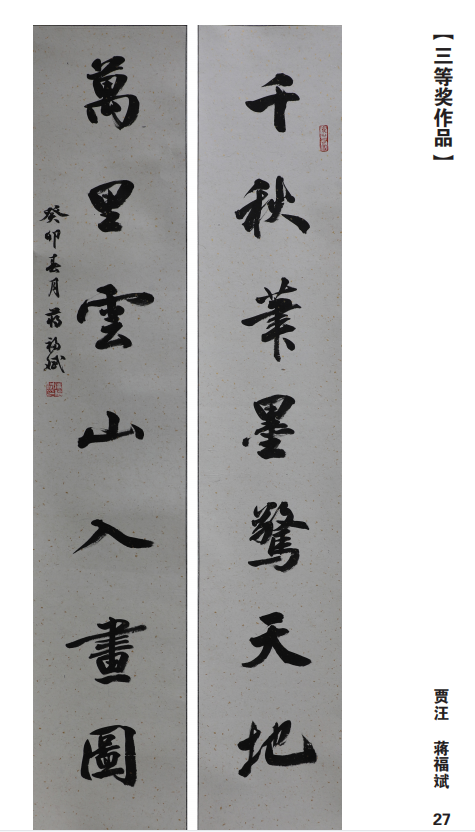 【三等奖作品】
千秋筆墨驚天地
萬里雲山入畫圖
癸卯春月蔣福斌
贾汪 蒋福斌
27